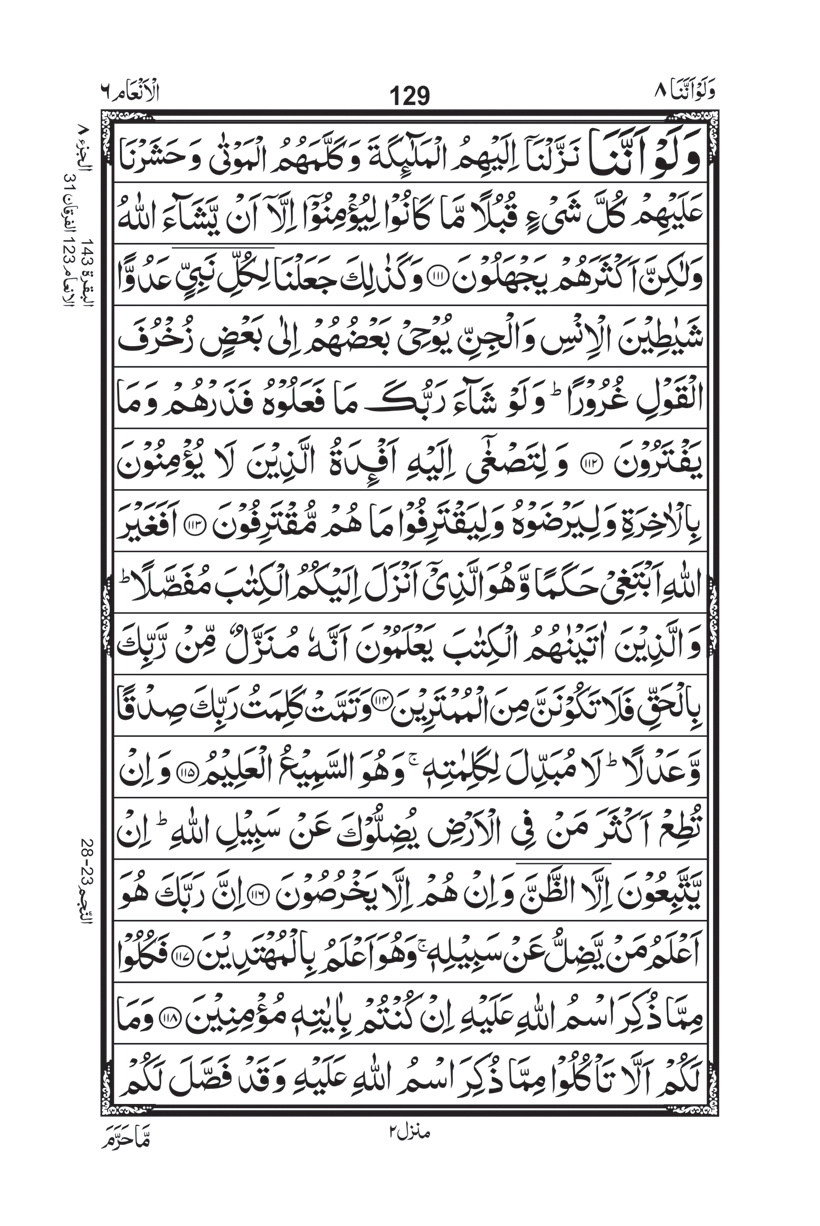 وَلَوْاَنَّنَا ٨
129
الْاَنْعَام ٦
وَلَوْ اَنَّنَا نَزَّلْنَاۤ اِلَيْهِمُ الْمَلٰٓئِكَةَ وَكَلَّمَهُمُ الْمَوْتٰى وَحَشَرْنَا
عَلَيْهِمْ كُلَّ شَىْءٍ قُبُلًا مَّا كَانُوْا لِيُؤْمِنُوْۤا اِلَّاۤ اَنْ يَّشَآءَ اللّٰهُ
وَلٰكِنَّ اَكْثَرَهُمْ يَجْهَلُوْنَ ۝١١١ وَكَذٰلِكَ جَعَلْنَا لِكُلِّ نَبِيٍّ عَدُوًّا
شَيٰطِيْنَ الْاِنْسِ وَالْجِنِّ يُوْحِىْ بَعْضُهُمْ اِلٰى بَعْضٍ زُخْرُفَ
الْقَوْلِ غُرُوْرًا ؕ وَلَوْ شَآءَ رَبُّكَ مَا فَعَلُوْهُ فَذَرْهُمْ وَمَا
يَفْتَرُوْنَ ۝١١٢ وَلِتَصْغٰٓى اِلَيْهِ اَفْـِٕدَةُ الَّذِيْنَ لَا يُؤْمِنُوْنَ
بِالْاٰخِرَةِ وَلِيَرْضَوْهُ وَلِيَقْتَرِفُوْا مَا هُمْ مُّقْتَرِفُوْنَ ۝١١٣ اَفَغَيْرَ
اللّٰهِ اَبْتَغِىْ حَكَمًا وَّهُوَ الَّذِىْۤ اَنْزَلَ اِلَيْكُمُ الْكِتٰبَ مُفَصَّلًا ؕ
وَالَّذِيْنَ اٰتَيْنٰهُمُ الْكِتٰبَ يَعْلَمُوْنَ اَنَّهٗ مُنَزَّلٌ مِّنْ رَّبِّكَ
بِالْحَقِّ فَلَا تَكُوْنَنَّ مِنَ الْمُمْتَرِيْنَ ۝١١٤ وَتَمَّتْ كَلِمَتُ رَبِّكَ صِدْقًا
وَّعَدْلًا ؕ لَا مُبَدِّلَ لِكَلِمٰتِهٖ ۚ وَهُوَ السَّمِيْعُ الْعَلِيْمُ ۝١١٥ وَاِنْ
تُطِعْ اَكْثَرَ مَنْ فِى الْاَرْضِ يُضِلُّوْكَ عَنْ سَبِيْلِ اللّٰهِ ؕ اِنْ
يَّتَّبِعُوْنَ اِلَّا الظَّنَّ وَاِنْ هُمْ اِلَّا يَخْرُصُوْنَ ۝١١٦ اِنَّ رَبَّكَ هُوَ
اَعْلَمُ مَنْ يَّضِلُّ عَنْ سَبِيْلِهٖ ۚ وَهُوَ اَعْلَمُ بِالْمُهْتَدِيْنَ ۝١١٧ فَكُلُوْا
مِمَّا ذُكِرَ اسْمُ اللّٰهِ عَلَيْهِ اِنْ كُنْتُمْ بِاٰيٰتِهٖ مُؤْمِنِيْنَ ۝١١٨ وَمَا
لَكُمْ اَلَّا تَاْكُلُوْا مِمَّا ذُكِرَ اسْمُ اللّٰهِ عَلَيْهِ وَقَدْ فَصَّلَ لَكُمْ
الجزء ٨
البقرة 143
الانعام 123 الفرقان 31
النّجم 23-28
منزل ٢
مَّا حَرَّمَ